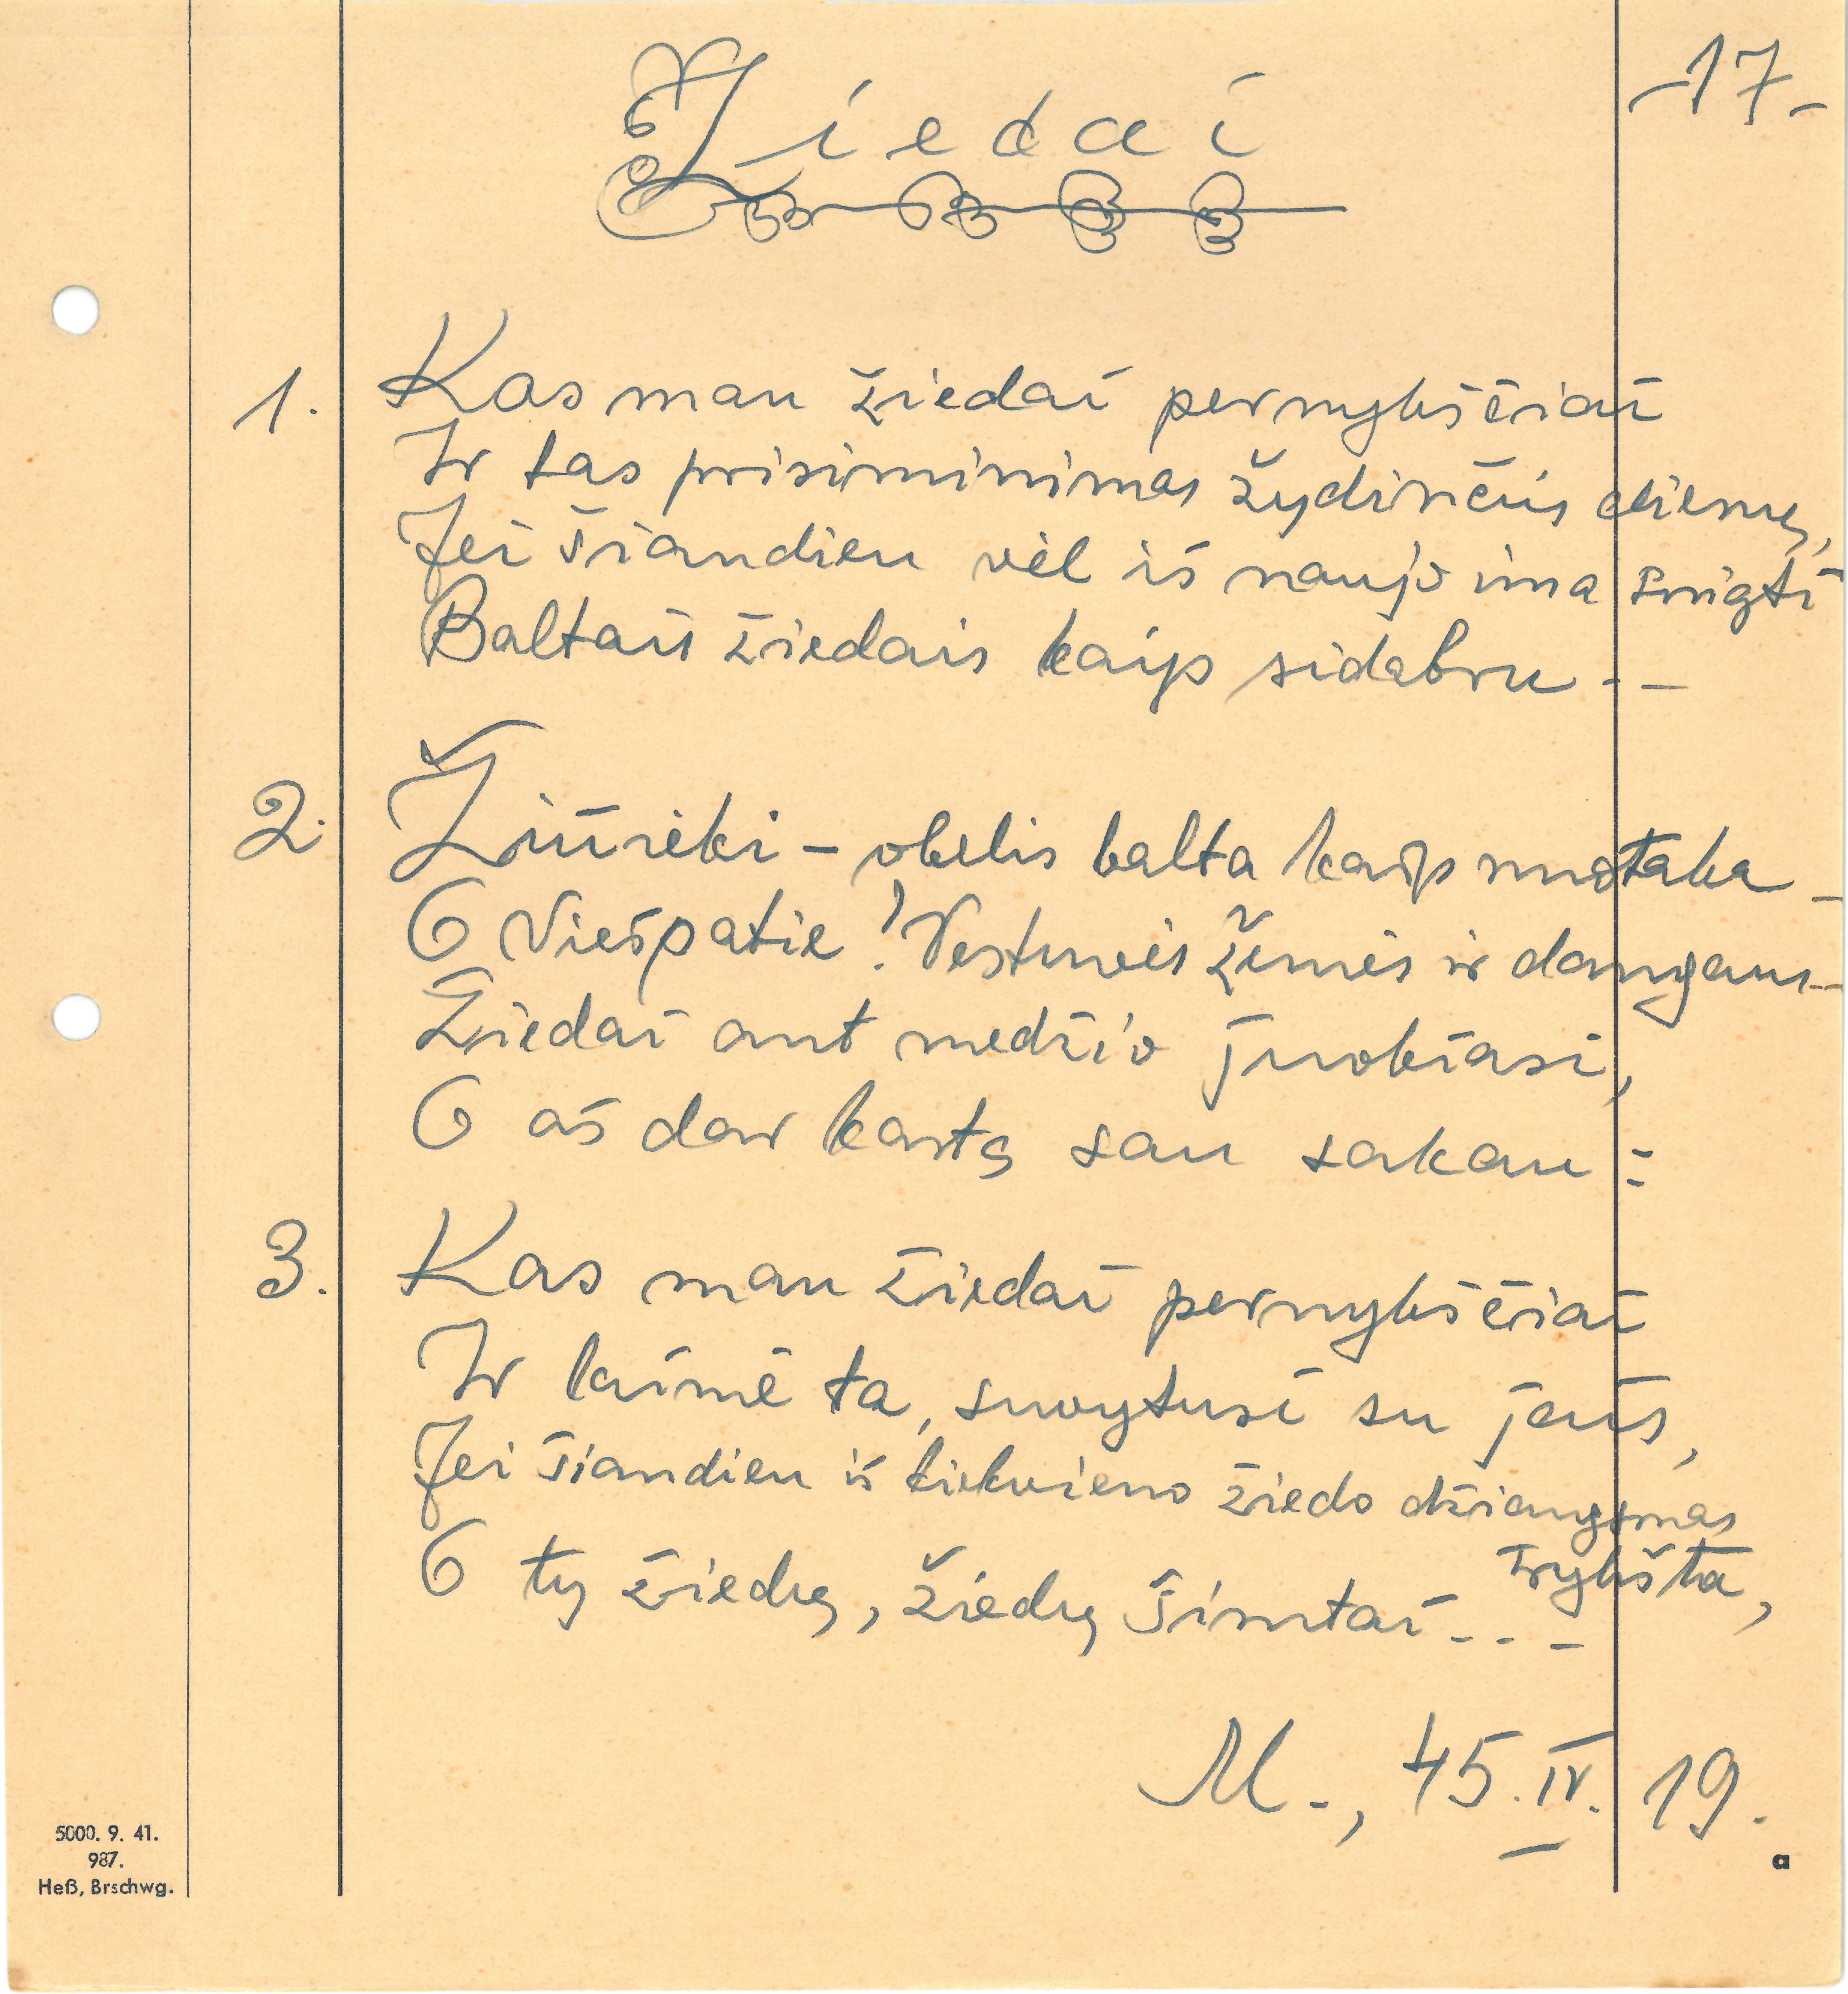 -17-
Žiedai
1. Kas man žiedai pernykščiai
Ir tas prisiminimas žydinčių dienų,
Jei šiandien vėl iš naujo ima snigti
Baltais žiedais kaip sidabru - -
2. Žiūrėki - obelis balta kaip nuotaka -
O Viešpatie! Vestuvės žemės ir dangaus -
Žiedai ant medžio juokiasi,
O aš dar kartą sau sakau:
3. Kas man žiedai pernykščiai
Ir laimė ta, suvytusi su jais,
Jei šiandien iš kiekvieno žiedo džiaugsmas
trykšta,
O tų žiedų, žiedų šimtai - - -
M., 45.IV.19.
5000. 9. 41.
987.
Heß, Brschwg.
a